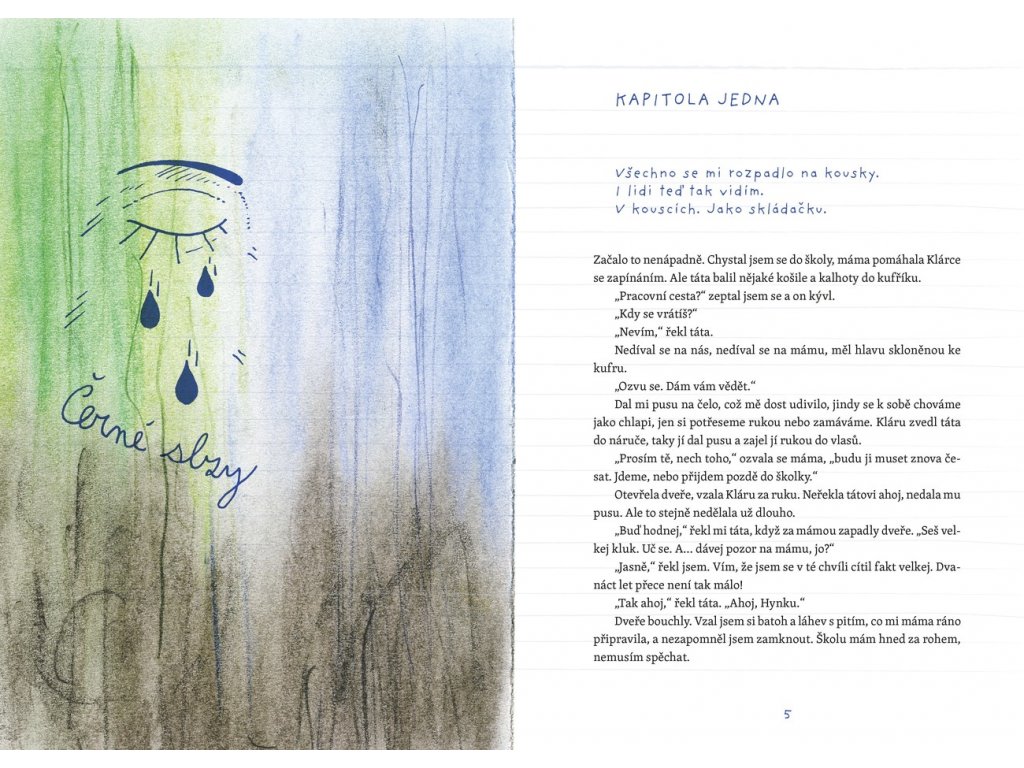 Černé slzy
KAPITOLA JEDNA
Všechno se mi rozpadlo na kousky.
I lidi teď tak vidím.
V kouscích. Jako skládačku.
Začalo to nenápadně. Chystal jsem se do školy, máma pomáhala Klárce
se zapínáním. Ale táta balil nějaké košile a kalhoty do kufříku.
„Pracovní cesta?“ zeptal jsem se a on kývl.
„Kdy se vrátíš?“
„Nevím,“ řekl táta.
Nedíval se na nás, nedíval se na mámu, měl hlavu skloněnou ke
kufru.
„Ozvu se. Dám vám vědět.“
Dal mi pusu na čelo, což mě dost udivilo, jindy se k sobě chováme
jako chlapi, jen si potřeseme rukou nebo zamáváme. Kláru zvedl táta
do náruče, taky jí dal pusu a zajel jí rukou do vlasů.
„Prosím tě, nech toho,“ ozvala se máma, „budu ji muset znova če-
sat. Jdeme, nebo přijdem pozdě do školky.“
Otevřela dveře, vzala Kláru za ruku. Neřekla tátovi ahoj, nedala mu
pusu. Ale to stejně nedělala už dlouho.
„Buď hodnej,“ řekl mi táta, když za mámou zapadly dveře. „Seš vel-
kej kluk. Uč se. A… dávej pozor na mámu, jo?“
„Jasně,“ řekl jsem. Vím, že jsem se v té chvíli cítil fakt velkej. Dva-
náct let přece není tak málo!
„Tak ahoj,“ řekl táta. „Ahoj, Hynku.“
Dveře bouchly. Vzal jsem si batoh a láhev s pitím, co mi máma ráno
připravila, a nezapomněl jsem zamknout. Školu mám hned za rohem,
nemusím spěchat.
5